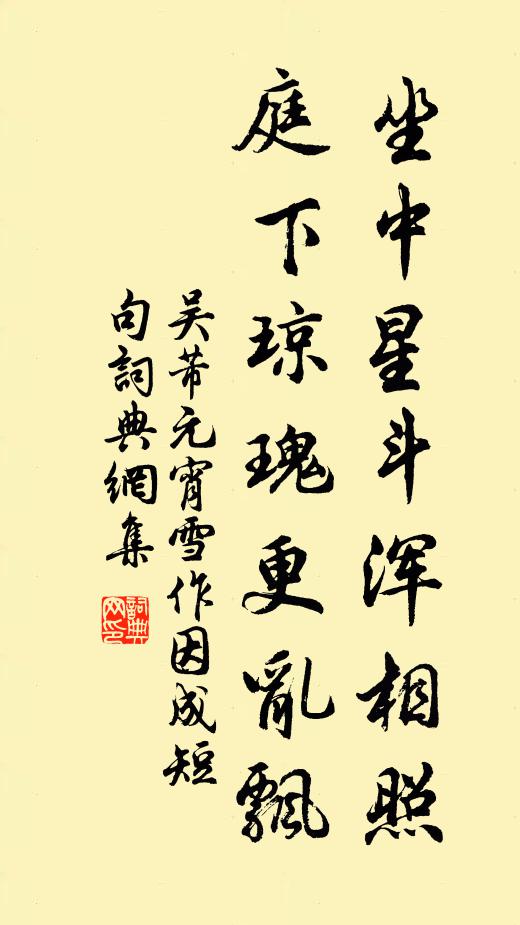 坐中星斗浑相照
庭下琼瑰更亂飄
吴芾元宵雪作因成短
句詞典網集
詞典
网印